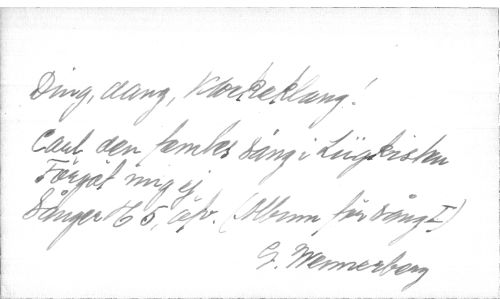 Ding, dang, klockeklang!
Carl den femtes sång i Liigkistan
Förgät mig ej
Sånger H 5, öfv. (Album för sång I)
G. Wennerberg